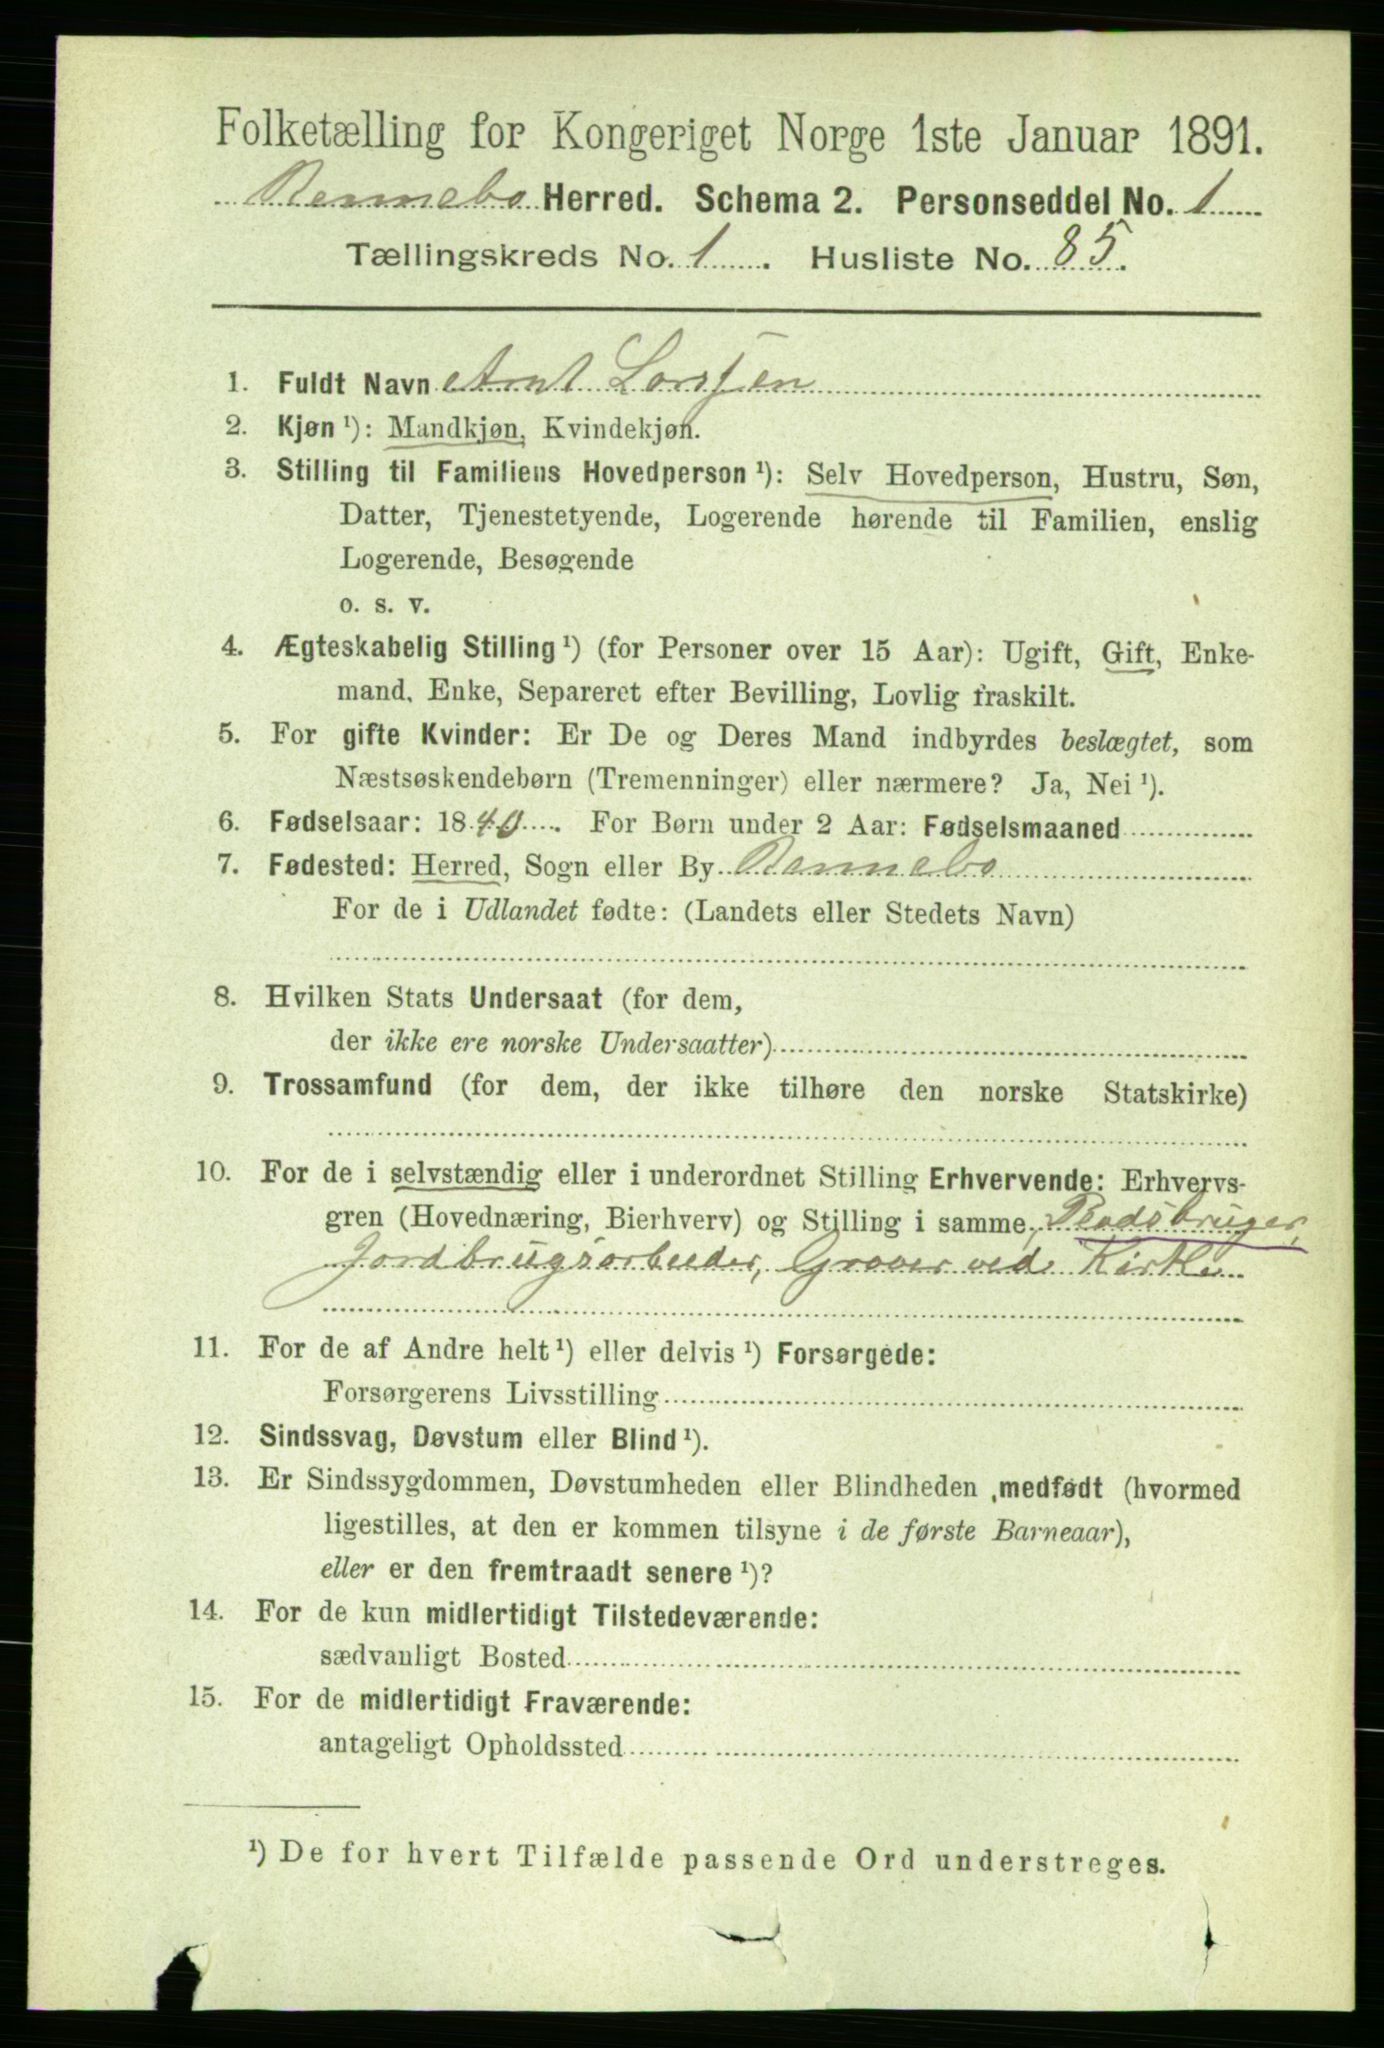 Folketælling for Kongeriget Norge 1ste Januar 1891.
Rennebo Herred. Schema 2. Personseddel No. 1
Tællingskreds No. 1. Husliste No. 85.
1. Fuldt Navn Arnt Larsen
2. Kjøn ¹): Mandkjøn, Kvindekjøn.
3. Stilling til Familiens Hovedperson ¹): Selv Hovedperson, Hustru, Søn,
Datter, Tjenestetyende, Logerende hørende til Familien, enslig
Logerende, Besøgende
o. s. v.
4. Ægteskabelig Stilling ¹) (for Personer over 15 Aar): Ugift, Gift, Enke-
mand, Enke, Separeret efter Bevilling, Lovlig fraskilt.
5. For gifte Kvinder: Er De og Deres Mand indbyrdes beslægtet, som
Næstsøskendebørn (Tremenninger) eller nærmere? Ja, Nei ¹).
6. Fødselsaar: 1840. For Børn under 2 Aar: Fødselsmaaned
7. Fødested: Herred, Sogn eller By Rennebo
For de i Udlandet fødte: (Landets eller Stedets Navn)
8. Hvilken Stats Undersaat (for dem,
der ikke ere norske Undersaatter)
9. Trossamfund (for dem, der ikke tilhøre den norske Statskirke)
10. For de i selvstændig eller i underordnet Stilling Erhvervende: Erhvervs-
gren (Hovednæring, Bierhverv) og Stilling i samme Pladsbruger,
Jordbrugsarbeider, Graver ved Kirke
11. For de af Andre helt ¹) eller delvis ¹) Forsørgede:
Forsørgerens Livsstilling
12. Sindssvag, Døvstum eller Blind ¹).
13. Er Sindssygdommen, Døvstumheden eller Blindheden medfødt (hvormed
ligestilles, at den er kommen tilsyne i de første Barneaar),
eller er den fremtraadt senere ¹)?
14. For de kun midlertidigt Tilstedeværende:
sædvanligt Bosted
15. For de midlertidigt Fraværende:
antageligt Opholdssted
¹) De for hvert Tilfælde passende Ord understreges.